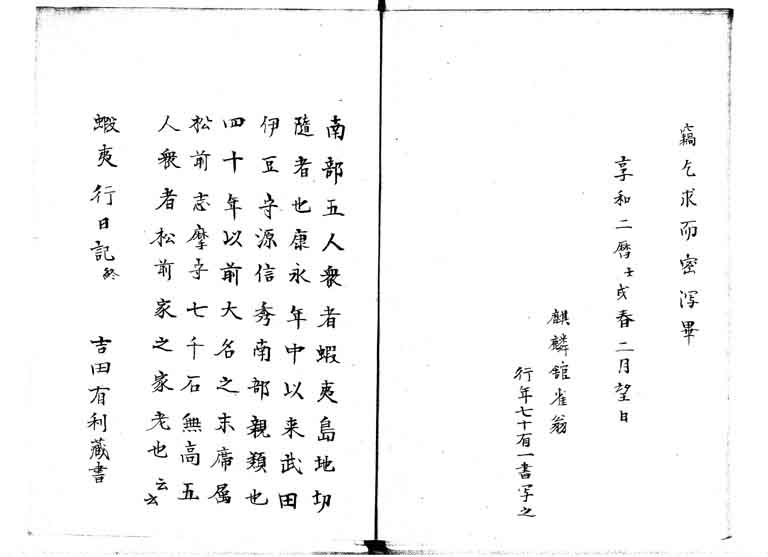 竊乞求而密写畢
享和二暦壬戌春二月望日
麒麟舘雀翁
行年七十有一書写之
南部五人衆者蝦夷島地切
隨者也康永年中以来武田
伊豆守源信秀南部親類也
四十年以前大名之末席属
松前志摩守七千石無高五
人衆者松前家之家老也云々
蝦夷行日記終
吉田有利藏書